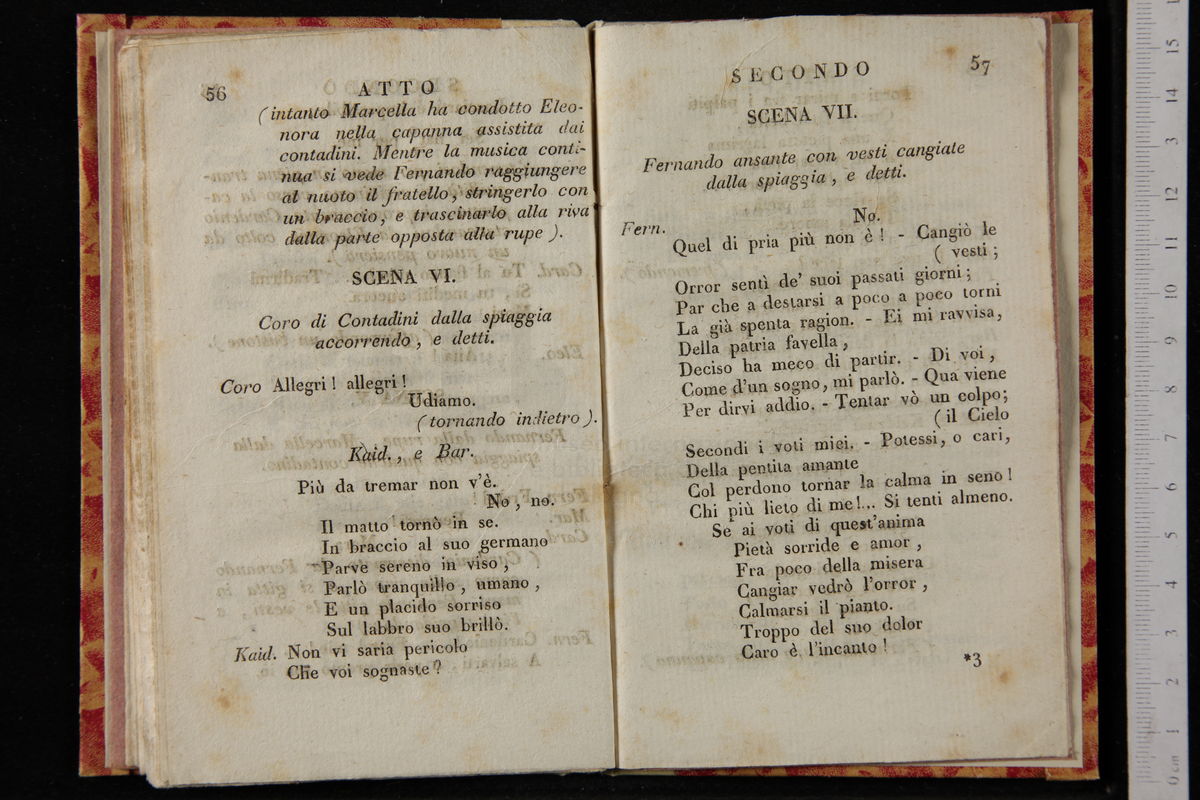 56 ATTO
(intanto Marcella ha condotto Eleo-
nora nella capanna assistita dai
contadini. Mentre la musica conti-
nua si vede Fernando raggiungere
al nuoto il fratello, stringerlo con
un braccio, e trascinarlo alla riva
dalla parte opposta alla rupe ).
SCENA VI.
Coro di Contadini dalla spiaggia
accorrendo, e detti.
Coro Allegri! allegri!
Udiamo.
(tornando indietro).
Kaid., e Bar.
Più da tremar non v'è.
No, no.
Il matto tornò in se.
In braccio al suo germano
Parve sereno in viso,
Parlò tranquillo, umano,
E un placido sorriso
Sul labbro suo brillò.
Kaid. Non vi saria pericolo
Che voi sognaste?
SECONDO 57
SCENA VII.
Fernando ansante con vesti cangiate
dalla spiaggia, e detti.
No.
Fern. Quel di pria più non è! - Cangiò le
( vesti ;
Orror sentì de' suoi passati giorni;
Par che a destarsi a poco a poco torni
La già spenta ragion. - Ei mi ravvisa,
Della patria favella,
Deciso ha meco di partir. - Di voi,
Come d'un sogno, mi parlò. - Qua viene
Per dirvi addio. - Tentar vò un colpo;
( il Cielo
Secondi i voti miei. - Potessi, o cari,
Della pentita amante
Col perdono tornar la calma in seno!
Chi più lieto di me!... Si tenti almeno.
Se ai voti di quest'anima
Pietà sorride e amor,
Fra poco della misera
Cangiar vedrò l'orror,
Calmarsi il pianto.
Troppo del suo dolor
Caro è l'incanto!
*3
15
14
13
12
11
10
9
8
7
6
5
4
3
2
1
0 cm